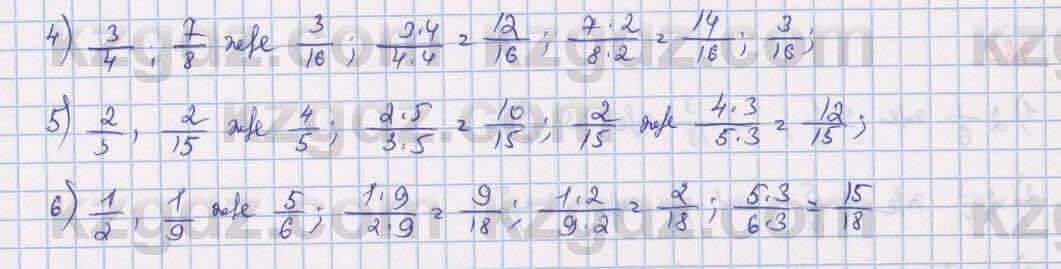 4) 3/4 ; 7/8 және 3/16 ; 3·4/4·4 = 12/16 ; 7·2/8·2 = 14/16 ; 3/16 ;
5) 2/3 , 2/15 және 4/5 ; 2·5/3·5 = 10/15 ; 2/15 және 4·3/5·3 = 12/15 ;
6) 1/2 , 1/9 және 5/6 ; 1·9/2·9 = 9/18 ; 1·2/9·2 = 2/18 ; 5·3/6·3 = 15/18
kzgdz.com